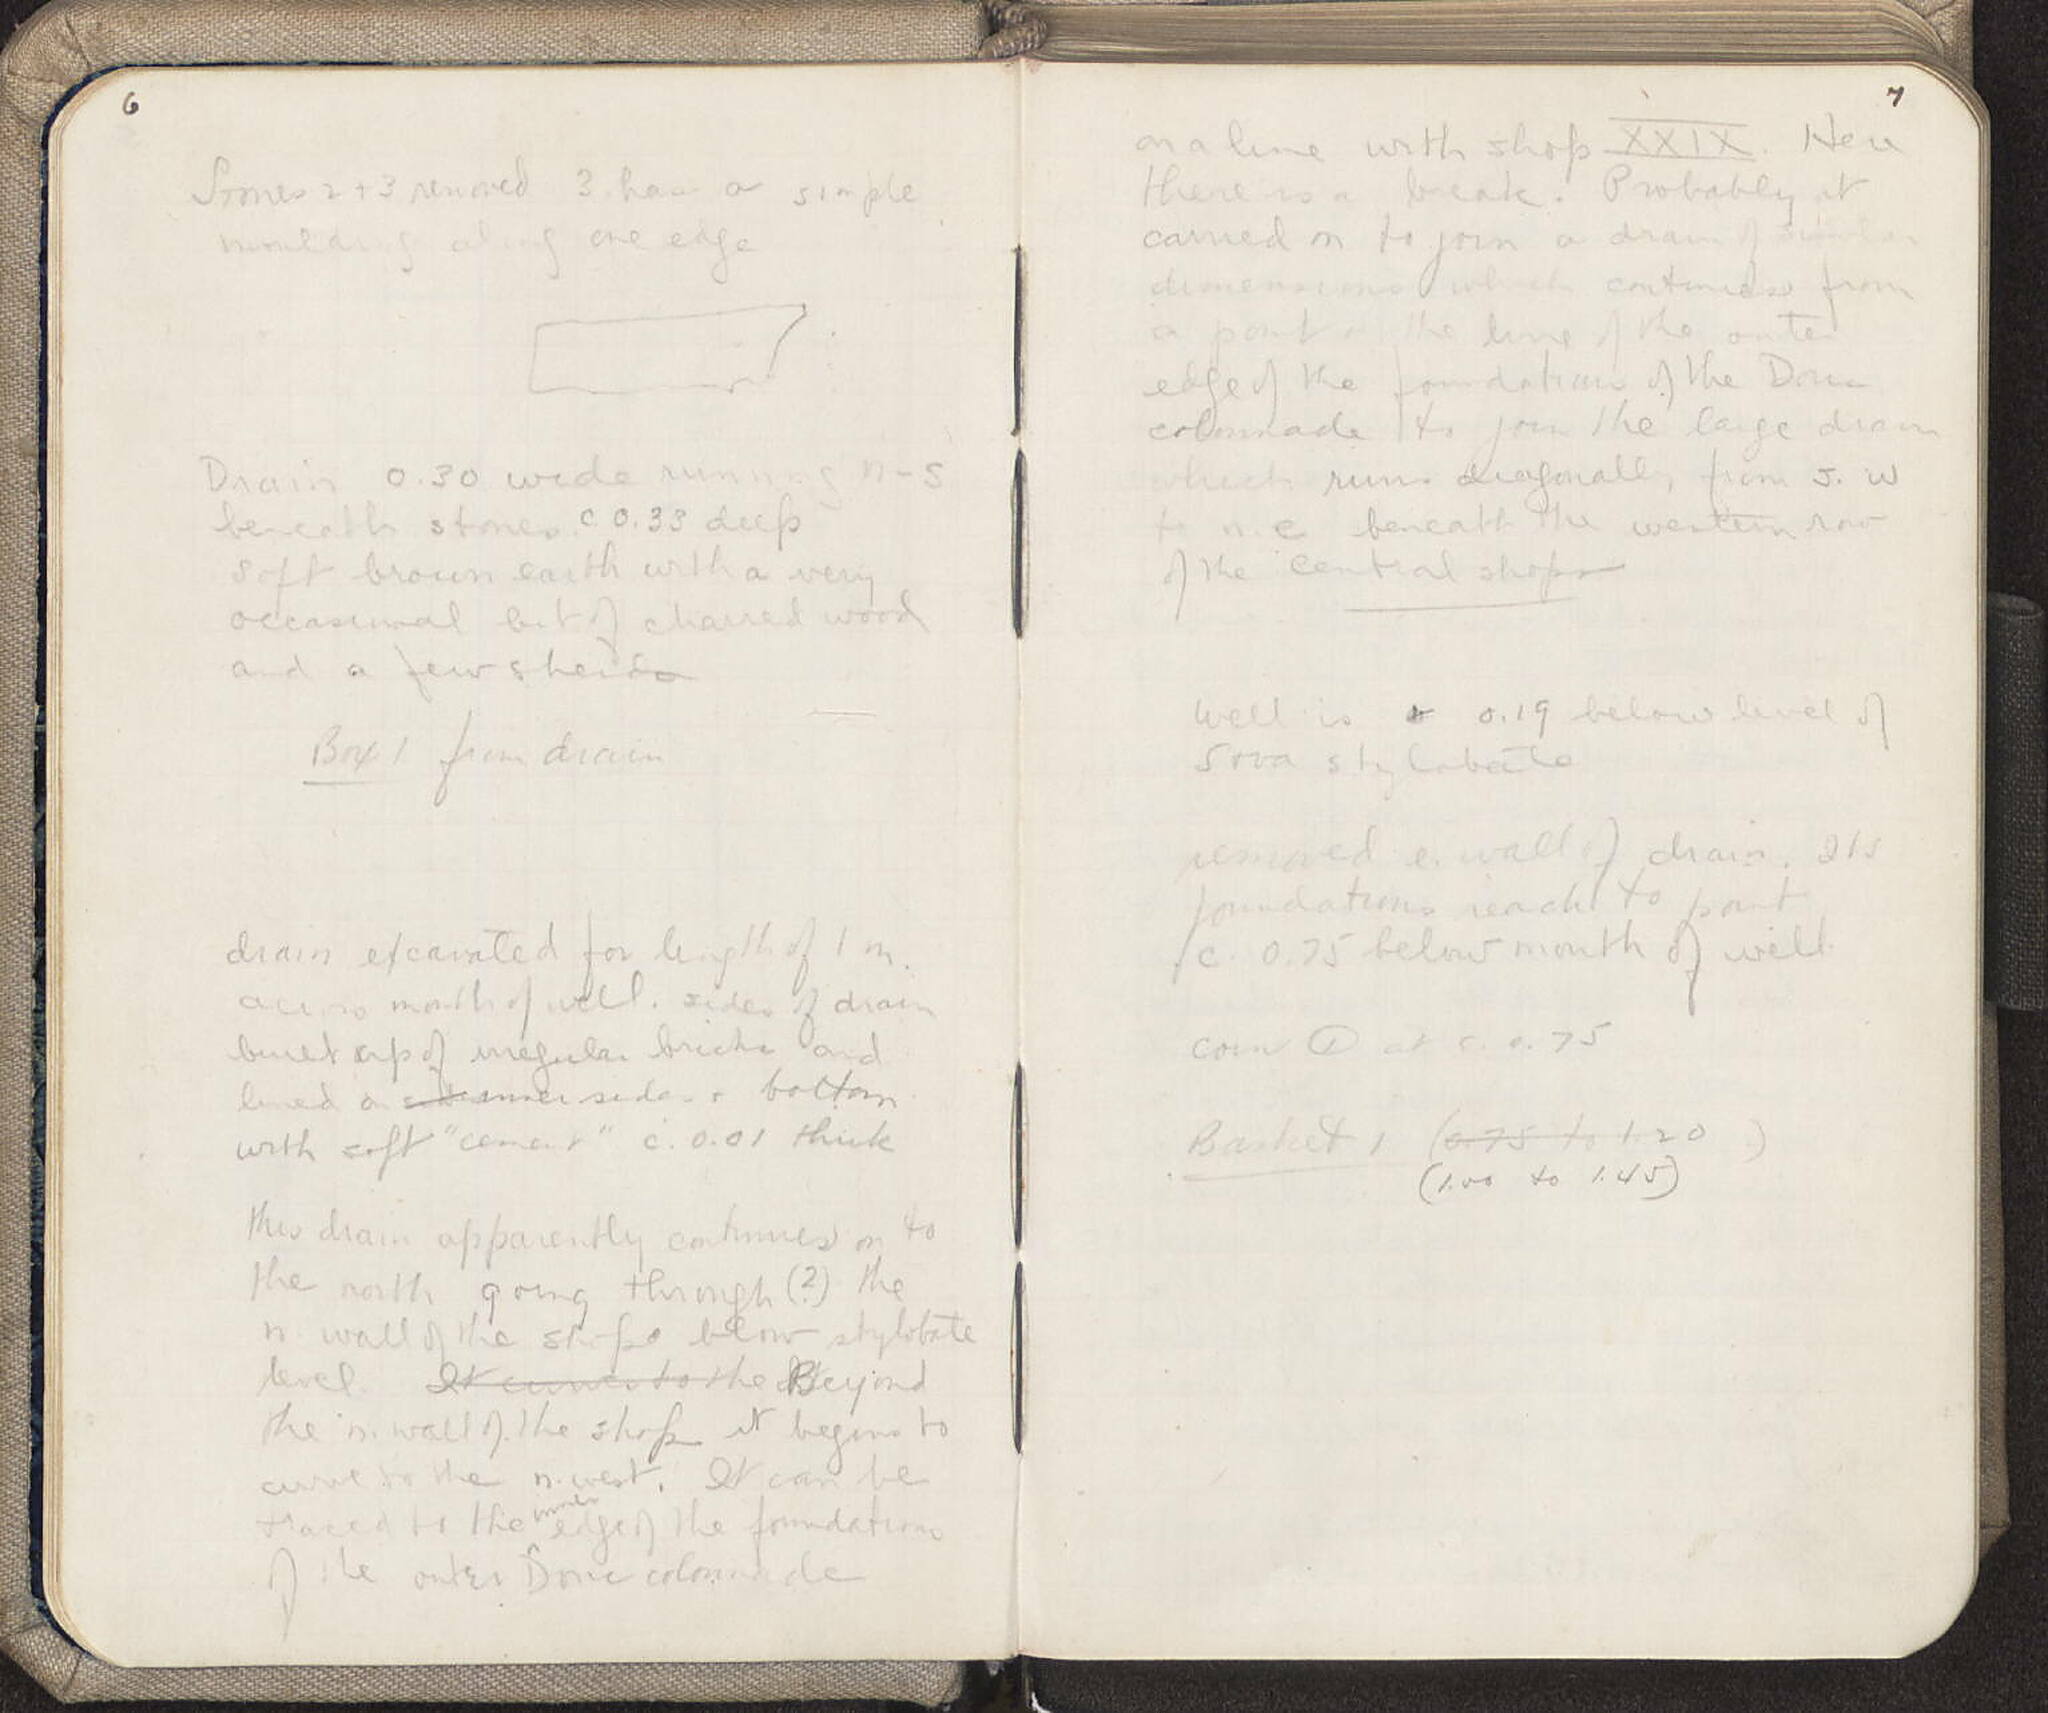 6
Stones 2 + 3 removed 3. has a simple
moulding along one edge
Drain 0.30 wide running n-s
beneath stones. c 0.33 deep
soft brown earth with a very
occasional bit of charred wood
and a few sherds
Box 1 from drain
drain excavated for length of 1 m.
across mouth of well. sides of drain
built up of irregular bricks and
lined on inner sides + bottom
with soft "cement" c. 0.01 thick
this drain apparently continues on to
the north going through (?) the
n. wall of the shops below stylobate
level. It curves to the Beyond
the n. wall of the shop it begins to
curve to the n. west. It can be
traced to the inner edge of the foundations
of the outer Doric colonnade
7
on a line with shop XXIX. Here
there is a break. Probably it
carried on to join a drain of similar
dimensions which continues from
a point on the line of the outer
edge of the foundations of the Doric
colonnade to join the large drain
which runs diagonally from s. w
to n. e beneath the western row
of the central shops
Well is 0.19 below level of
Stoa stylobate
removed e. wall of drain. Its
foundations reach to point
c. 0.75 below mouth of well.
coin ① at c. 0.75
Basket 1 (0.75 to 1.20)
(1.00 to 1.45)